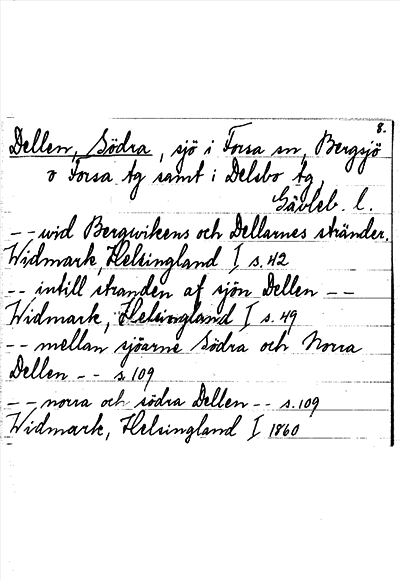 8.
Dellen, Södra, sjö i Forsa sn, Bergsjö
o Forsa tg samt i Delsbo tg,
Gävleb. l.
-- wid Bergwikens och Dellarnes stränder.
Widmark, Helsingland I s. 42
-- intill stranden af sjön Dellen --
Widmark, Helsingland I s. 49
-- mellan sjöarne Södra och Norra
Dellen -- s. 109
-- norra och södra Dellen -- s. 109
Widmark, Helsingland I 1860